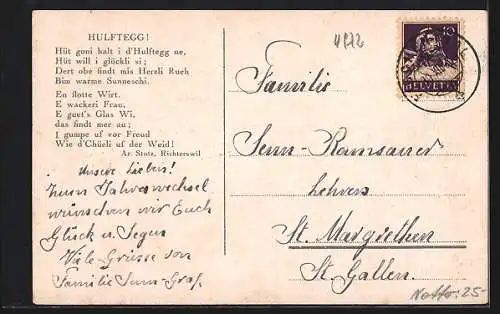 HULFTEGG!
Hüt goni halt i d'Hulftegg ue,
Hüt will i glöckli si;
Dert obe findt mis Herzli Rueh
Bim warme Sunneschi.
En flotte Wirt.
E wackeri Frau,
E guet's Glas Wi,
das findt mer au;
I gumpe uf vor Freud
Wie d'Chüeli uf der Weid!
Ar. Stutz, Richterswil
Unsere Lieben!
Zum Jahreswechsel
wünschen wir Euch
Glück u. Segen
Viele Grüsse von
Familie Senn-Graf.
10
HELVETIA
Familie
Senn-Ramsauer
Lehren
St. Margrethen
St. Gallen.
Netto: 25-